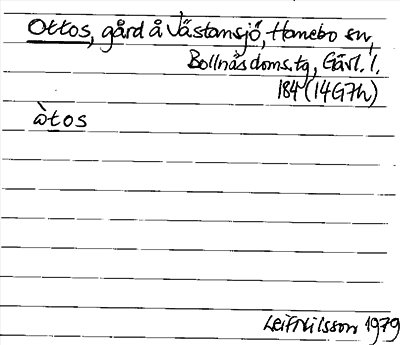 Ottos, gård å Västansjö, Hanebo sn,
Bollnäs doms.tg, Gävl. l.
184 (14G7h)
àtos
Leif Nilsson 1979